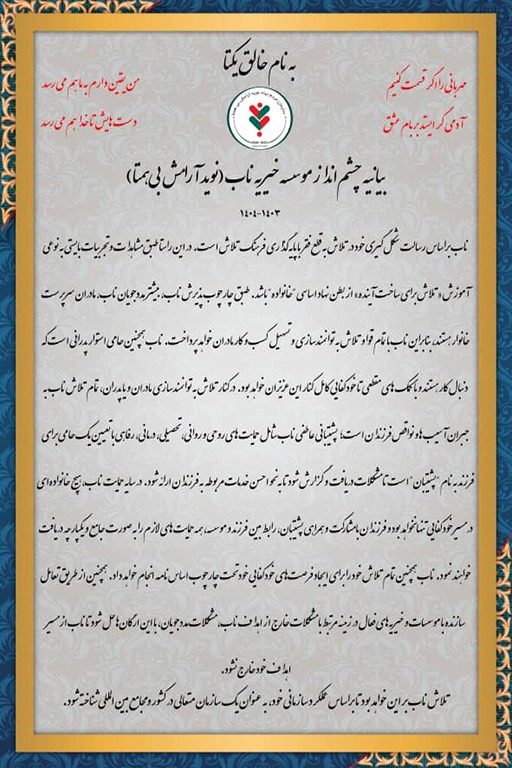 به نام خالق یکتا
مهربانی را اگر قسمت کنیم
من یقین دارم به ما هم می رسد
آدمی گر ایستد بر بام عشق
دست هایش تا خدا هم می رسد
بیانیه چشم انداز موسسه خیریه ناب (نوید آرامش بی همتا)
۱۴۰۳-۱۴۰۴
ناب بر اساس رسالت شکل گیری خود در تلاش به قطع فقر با پایه گذاری فرهنگ تلاش است. در این راستا طبق مشاهدات و تجربیات بایستی به نوعی
آموزش «تلاش برای ساخت آینده» از بطن نهاد اساسی "خانواده" باشد. طبق چارچوب پذیرش ناب، بیشتر مددجویان ناب، مادران سرپرست
خانوار هستند، بنابراین ناب با تمام قوا و تلاش به توانمندسازی و تسهیل کسب و کار مادران خواهد پرداخت. ناب همچنین حامی استوار پدرانی است که
دنبال کار هستند و با کمک های مقطعی تا خودکفایی کامل کنار این عزیزان خواهد بود. در کنار تلاش به توانمندسازی مادران و یا پدران، تمام تلاش ناب به
جبران آسیب ها و نواقص فرزندان است؛ پشتیبانی عاطفی ناب شامل حمایت های روحی و روانی، تحصیلی، درمانی، رفاهی با تعیین یک حامی برای
فرزند به نام "پشتیبان" است تا مشکلات دریافت و گزارش شود تا به نحو احسن خدمات مربوطه به فرزندان ارائه شود. در سایه حمایت ناب، هیچ خانواده ای
در مسیر خودکفایی تنها نخواهد بود و فرزندان با مشارکت و همراهی پشتیبان، رابط بین فرزند و موسسه، همه حمایت های لازم را به صورت جامع و یکپارچه دریافت
خواهند نمود. ناب همچنین تمام تلاش خود را برای ایجاد فرصت های خودکفایی خود تحت چارچوب اساس نامه انجام خواهد داد. همچنین از طریق تعامل
سازنده با موسسات و خیریه های فعال در زمینه مرتبط با مشکلات خارج از اهداف ناب، مشکلات مددجویان، با این ارگان ها حل شود تا ناب از مسیر
اهداف خود خارج نشود.
تلاش ناب بر این خواهد بود تا بر اساس عملکرد سازمانی خود، به عنوان یک سازمان متعالی در کشور و مجامع بین المللی شناخته شود.